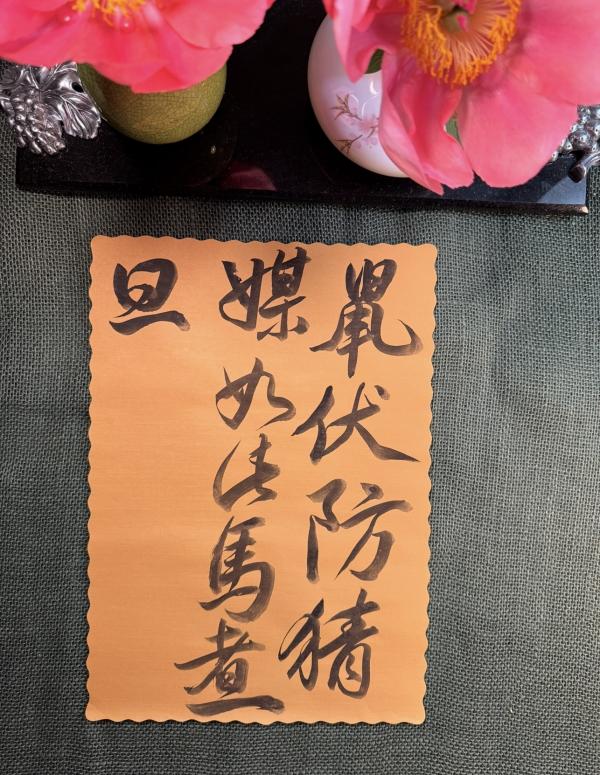 鼠伏防猜
媒如法馬煮
旦